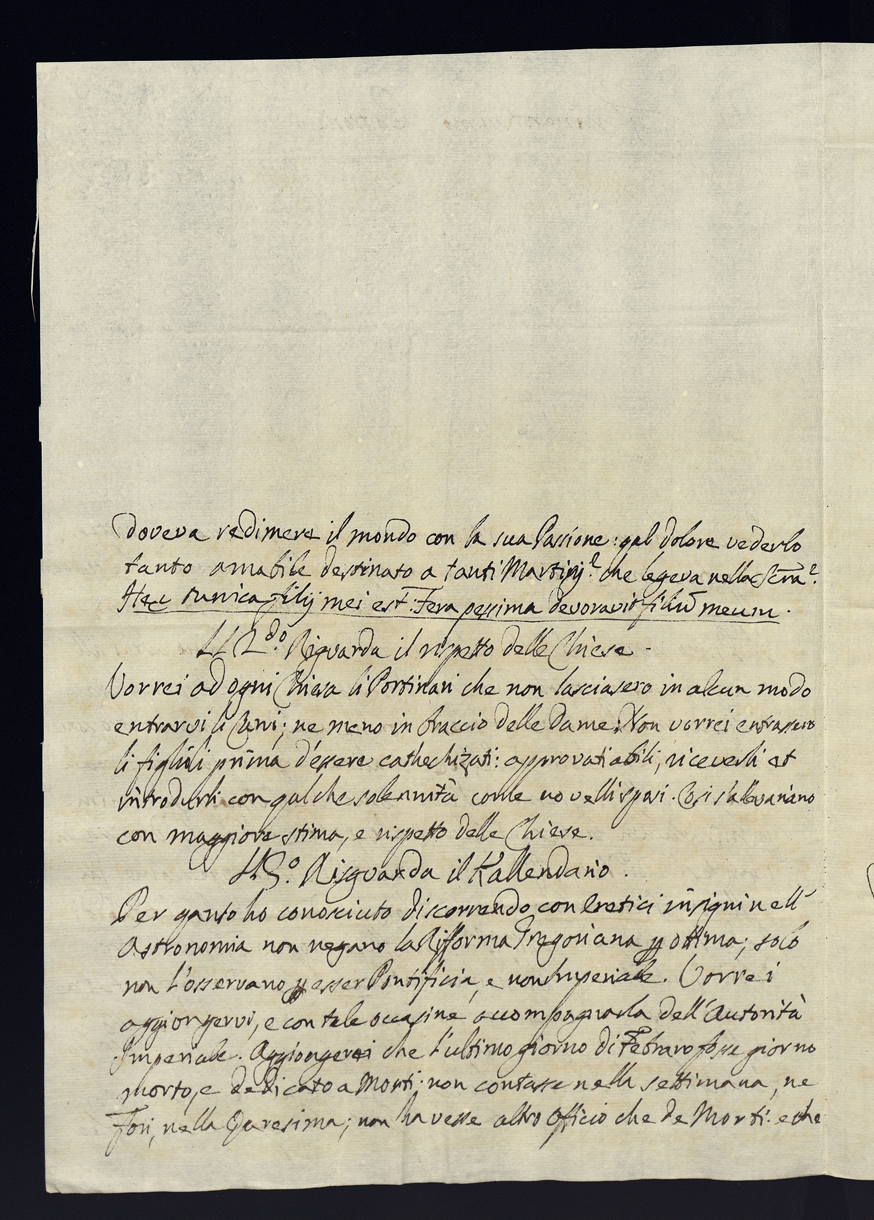 doveva redimere il mondo con la sua Passione: qal dolore vederlo
tanto amabile destinato a tanti Martirij? che legeva nella
Hæc tunica filij mei est. Fera pessima devoravit filiū meum.
Il 2.do Riguarda il rispetto delle Chiese.
Vorrei ad ogni Chiesa li Portinari che non lasciasero in alcun modo
entrarvi li Cani; ne meno in braccio delle Dame. Non vorrei entrassero
li figlioli prima d'essere cathechizati: approvati abili, riceverli et
introdurli con qalche solennità come novelli sposi. Cosi s'allevariano
con maggiore stima, e rispetto delle Chiese.
Il 3.o Risguarda il Kallendario.
Per qanto ho conosciuto discorrendo con Eretici insigni nell'
Astronomia non negano la Rifforma Gregoriana p ottima; solo
non l'osservano p esser Pontificia, e non Imperiale. Vorrei
aggiongervi, e con tale occasine accompagnarla dell'Autorità
Imperiale. Aggiongerei che l'ultimo giorno di Febraro fosse giorno
morto, e dedicato a Morti: non contasse nella settimana, ne
Fori, nella Qaresima; non havesse altro Officio che de Morti: e che